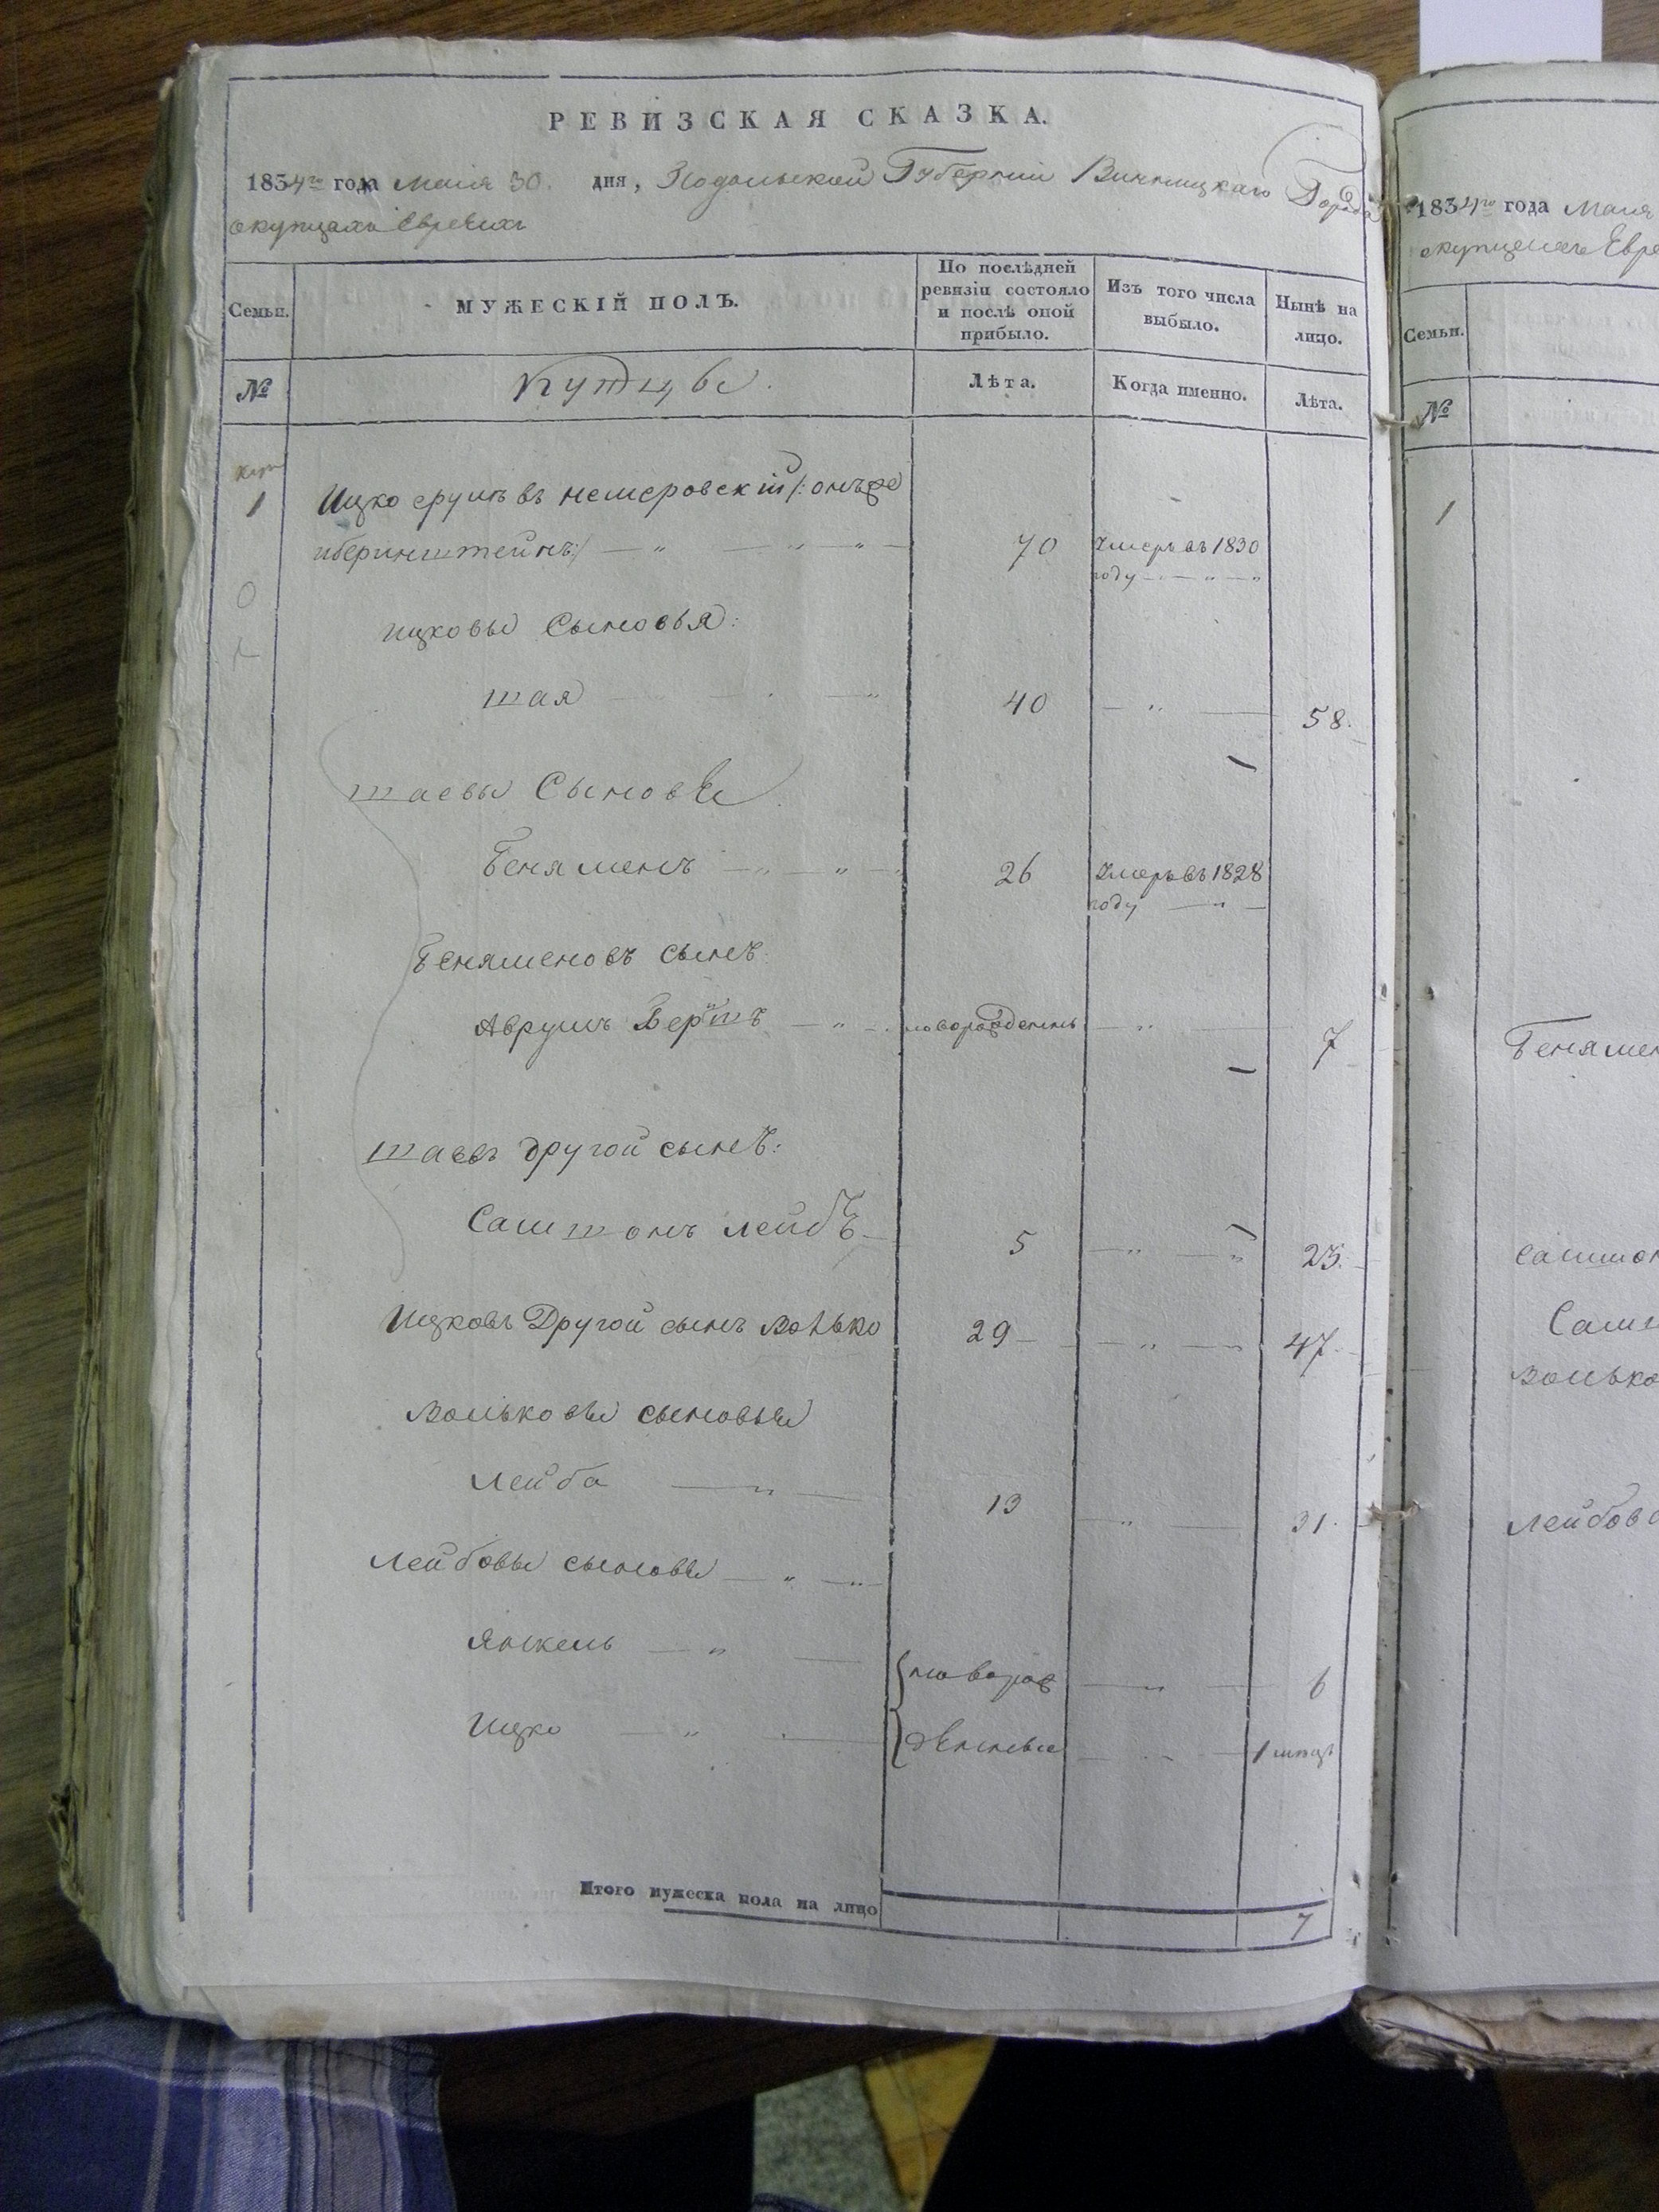 РЕВИЗСКАЯ СКАЗКА.
1834го года маия 30. дня, Подольской Губернии Винницкаго Города
окупцахъ Евреихъ
Семьи.
МУЖЕСКІЙ ПОЛЪ.
По послѣдней ревизіи состояло и послѣ оной прибыло.
Изъ того числа выбыло.
Нынѣ на лицо.
№
Купцы
Лѣта.
Когда именно.
Лѣта.
1
Ицко срулевъ немеровскій /: онъже
иберинштейнъ :/ 70 Умеръ въ 1830
году
Ицковы Сыновья:
шая 40 58.
шаевы Сыновья
Беняменъ 26 Умеръ въ 1828
году
Беняменовъ сынъ:
Аврумъ Берш новорожденны 7
шаевъ другой сынъ:
Самшонъ лейбъ 5 23.
Ицковъ Другой сынъ волько 29 47.
Вольковы сыновья
Лейба 13 31.
Лейбовы сыновья
Янкель новорож 6
Ицко денные 1 мѣсяц
Итого мужеска пола на лицо 7
1834го года маия
окупцахъ Евре
Семьи.
№
1
Бенямен
Самшон
Волько
Лейбов